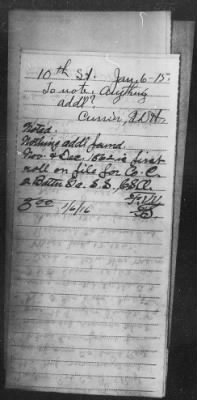 10th St. Jan. 6-15
To note. Anything
addl?
Currier, A.D.H.
Noted.
Nothing addl found.
Nov. & Dec. 1862 is first
roll on file for Co. C.
Battn S.S. C.S.A.
1/6/16